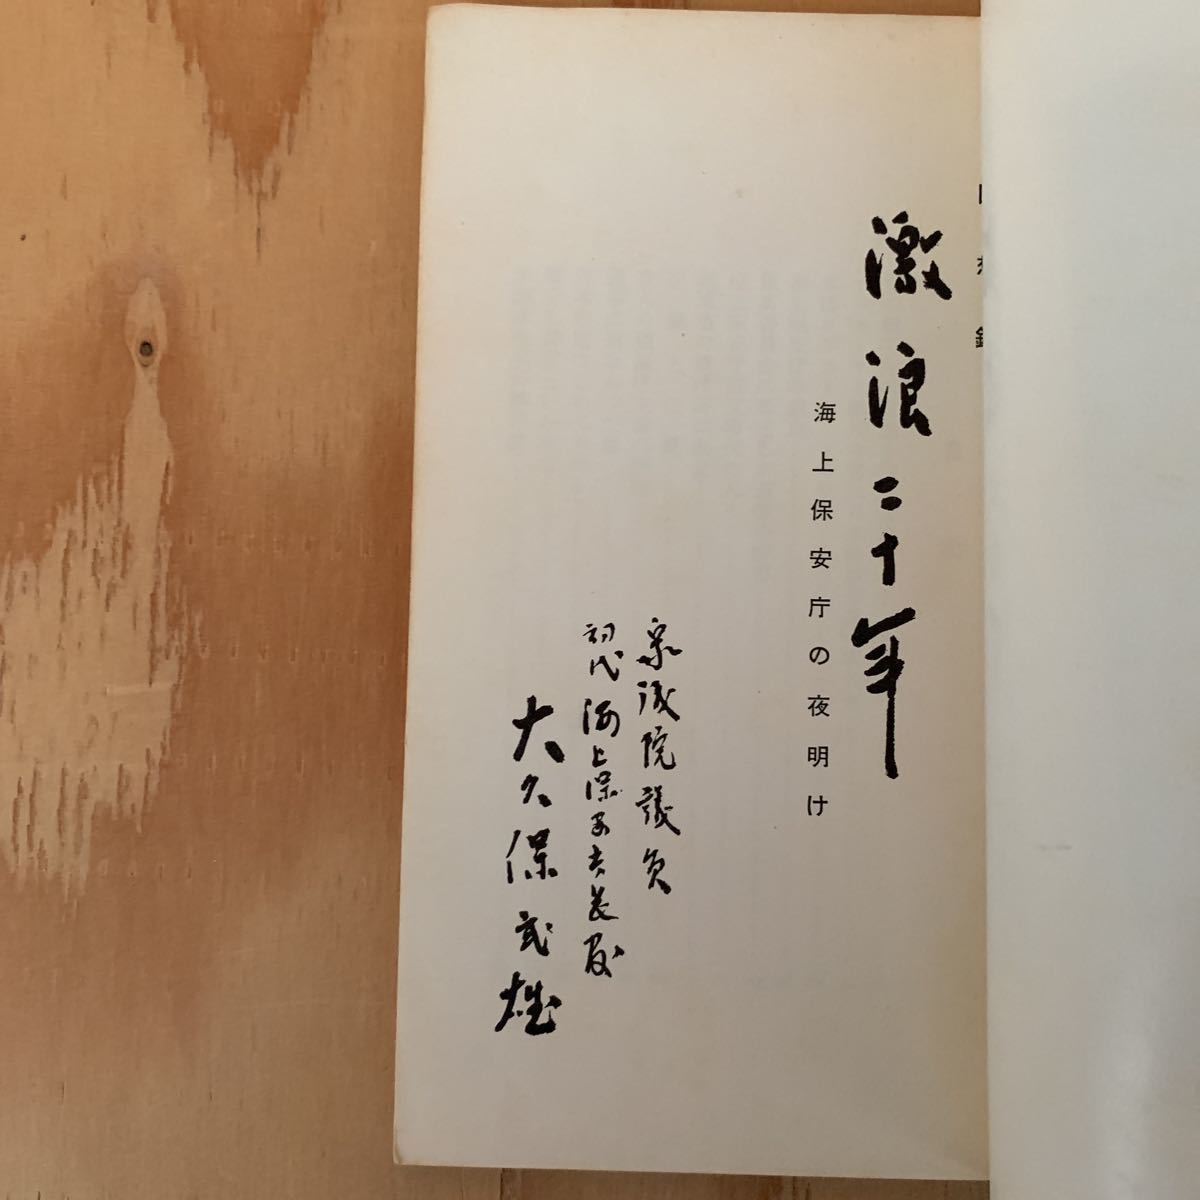 回想録
激浪二十年
海上保安庁の夜明け
衆議院議員
初代海上保安庁長官
大久保武雄